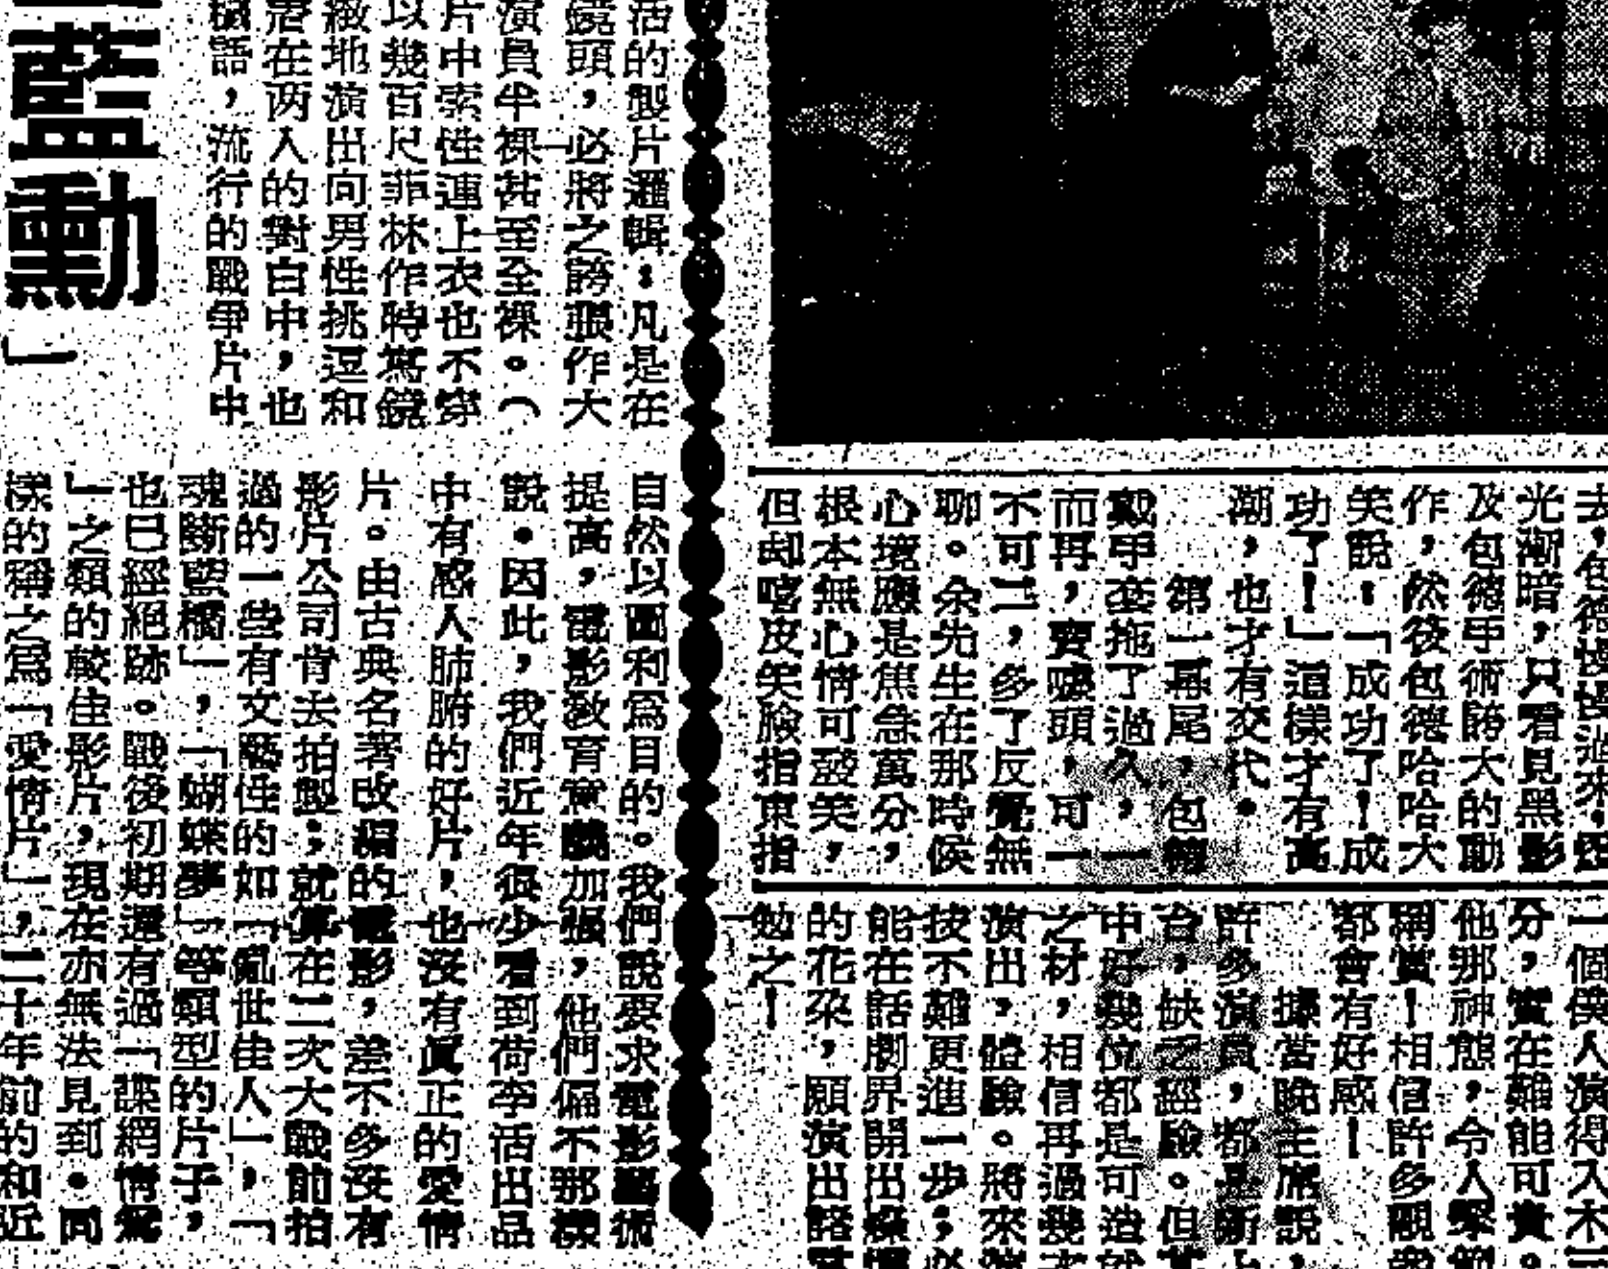 去，包德慢慢過來，燈
光漸暗，只看見黑影
及包德手術誇大的動
作，然後包德哈哈大
笑說：「成功了！成
功了！」這樣才有高
潮，也才有交代。
第一幕尾，包德
戴手套拖了過久，一
而再，賣噱頭，可一
不可二，多了反覺無
聊。余先生在那時候
心境應是焦急萬分，
根本無心情可發笑，
但却嘻皮笑臉指東指
一個僕人演得入木三
分，實在難能可貴。
他那神態，令人擊節
稱賞！相信許多觀衆
都會有好感！
據當晚主席說，
許多演員，都是新上
台，缺乏經驗。但其
中好幾位都是可造就
之材，相信再過幾次
演出，體驗。將來演
技不難更進一步；必
能在話劇界開出燦爛
的花朶，願演出諸君
勉之！
活的製片邏輯：凡是在
鏡頭，必將之誇張作大
演員半裸甚至全裸。（
片中索性連上衣也不穿
以幾百尺菲林作特寫鏡
緻地演出向男性挑逗和
潜在两人的對白中，也
議語，流行的戰爭片中
藍勳」
自然以圖利爲目的。我們說要求電影藝術
提高，電影教育意義加强，他們偏不那樣
說。因此，我們近年很少看到荷李活出品
中有感人肺腑的好片，也沒有眞正的愛情
片。由古典名著改編的電影，差不多沒有
影片公司肯去拍製；就算在二次大戰前拍
過的一些有文藝性的如「亂世佳人」，「
魂斷藍橋」，「蝴蝶夢」等類型的片子，
也已經絕跡。戰後初期還有過「諜網情鴛
」之類的較佳影片，現在亦無法見到。同
樣的稱之爲「愛情片」，二十年前的和近